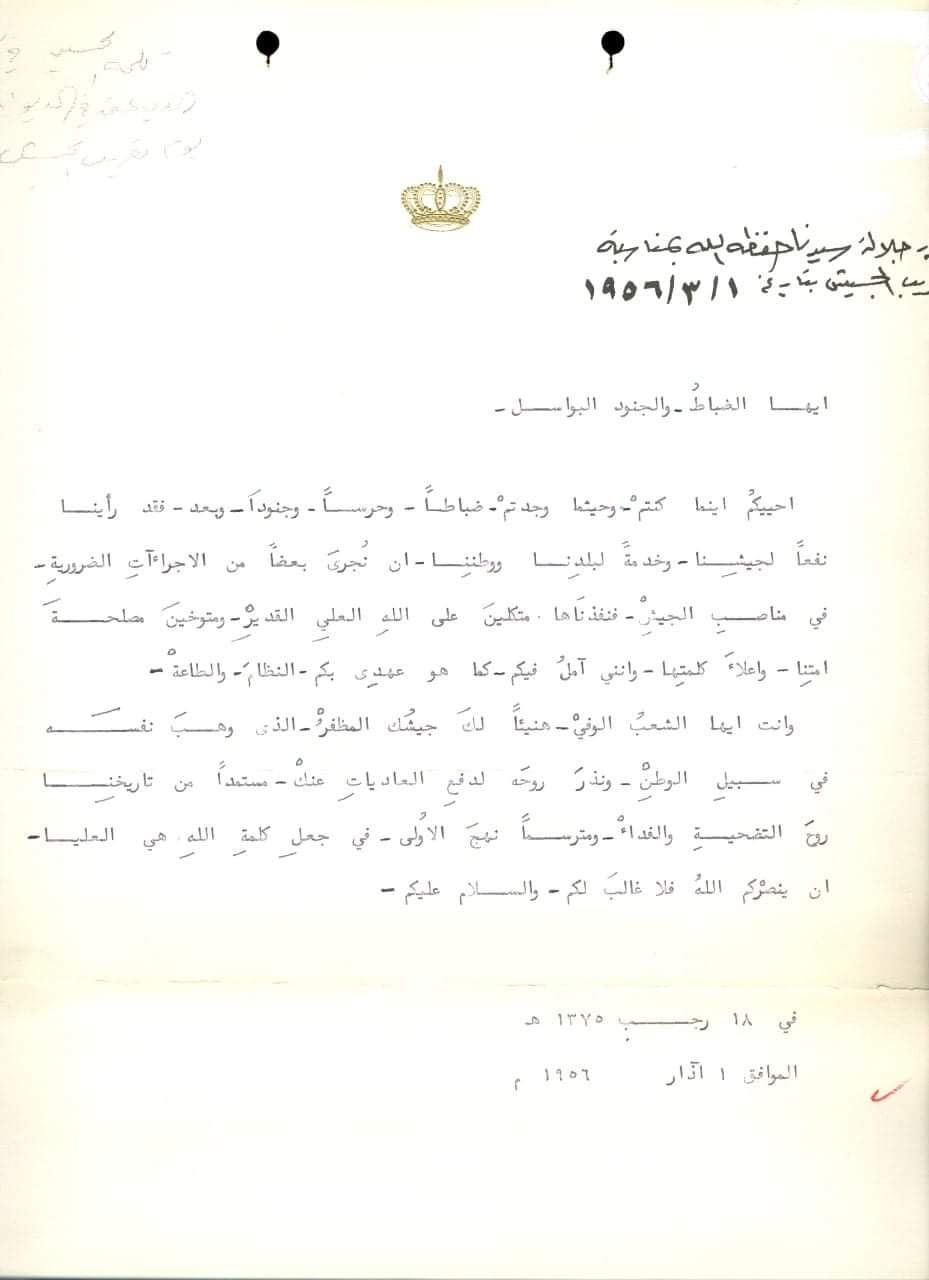 جلالة سيدنا حفظه الله بمناسبة
الجيش بتاريخ ١٩٥٦/٣/١
ايهـــا الضباطُ ـ والجنود البواســـل ـ
احييكمُ اينما كنتمْ ـ وحيثما وجدتمْ ـ ضباطـاً ـ وحرســـاً ـ وجنوداً ـ وبعد ـ فقد رأينـــا
نفعاً لجيشِـــنا ـ وخدمةً لبلدِنـــا ووطننِـــا ـ ان نُجرىَ بعضاً من الاجراءآتِ الضروريةِ ـ
في مناصـــبِ الجيشِْ ـ فنفذنَاها . متكلينَ على اللهِ العلي القديرِْ ـ ومتوخينَ مصلحـــةَ
امتنِا ـ واعلاءَ كلمتِها ـ وانني آملُ فيكم ـ كما هو عهدِى بكم ـ النظامَ ـ والطاعةْ ـ
وانت ايها الشعبُ الوفيْ ـ هنيئاً لكَ جيشُك المظفرُْ ـ الذى وهـــبَ نفســـه
في ســـبيلِ الوطنِْ ـ ونذرَ روحَه لدفعِ العادياتِ عنكْ ـ مستمداً من تاريخنِـــا
روحَ التضحيـــةِ والفداءْ ـ ومترســـماً نهجَ الاُولى ـ في جعلِ كلمةِ اللهِ هي العليـــا ـ
ان ينصرْكم اللهُ فلا غالبَ لكم ـ والســـلام عليكم ـ
في ١٨ رجـــب ١٣٧٥ هـ
الموافق ١ آذار ١٩٥٦ م